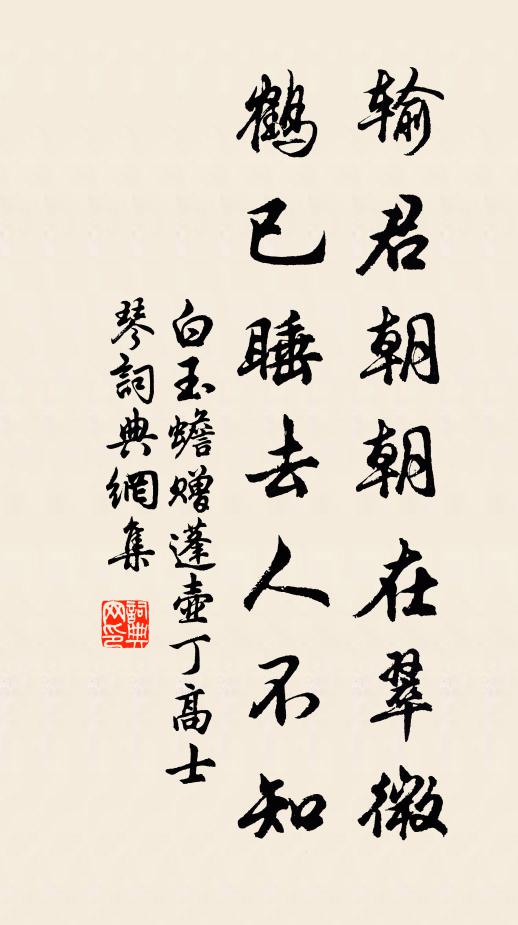 输君朝朝在翠微
鹤已睡去人不知
白玉蟾赠蓬壶丁高士
琴詞典網集
詞典网印